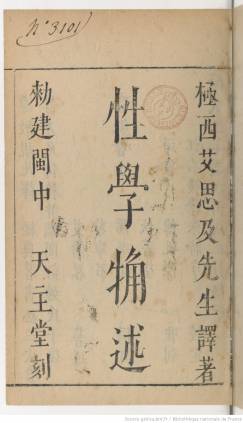 n° 3101
極西艾思及先生譯著
性學觕述
勅建閩中 天主堂刻
Source gallica.bnf.fr / Bibliothèque nationale de France